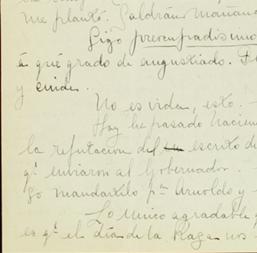 me plantó. Saldrán mañana
Sigo preocupadísimo
a qué grado de angustiado.
y cuide.
No es vida, esto.
Hoy he pasado
la refutación del escrito de
q. enviaron al Gobernador.
Yo mandártelo pr Arnoldo y
Lo único agradable
es q. el Día de la Raza nos